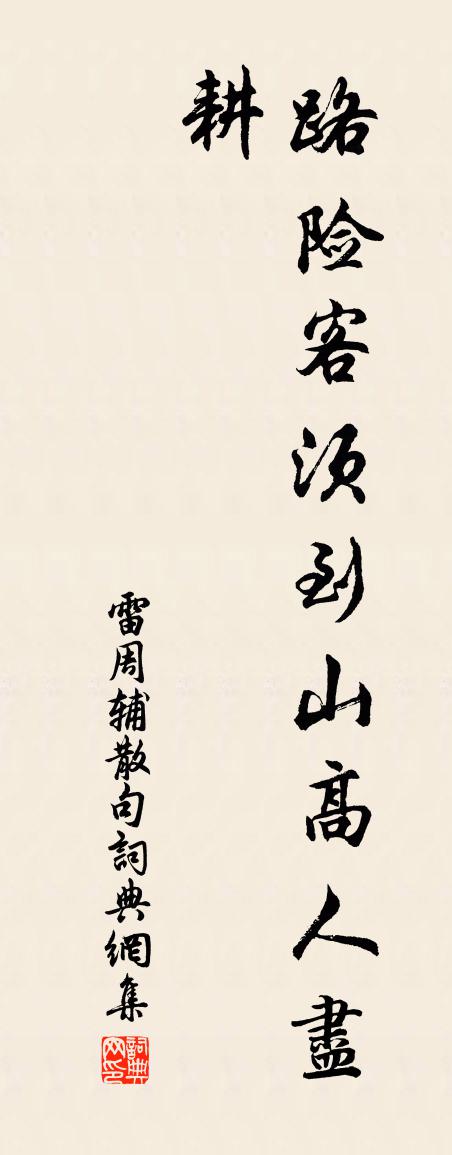 路险客须到山高人盡
耕
雷周辅散句詞典網集
詞典网印